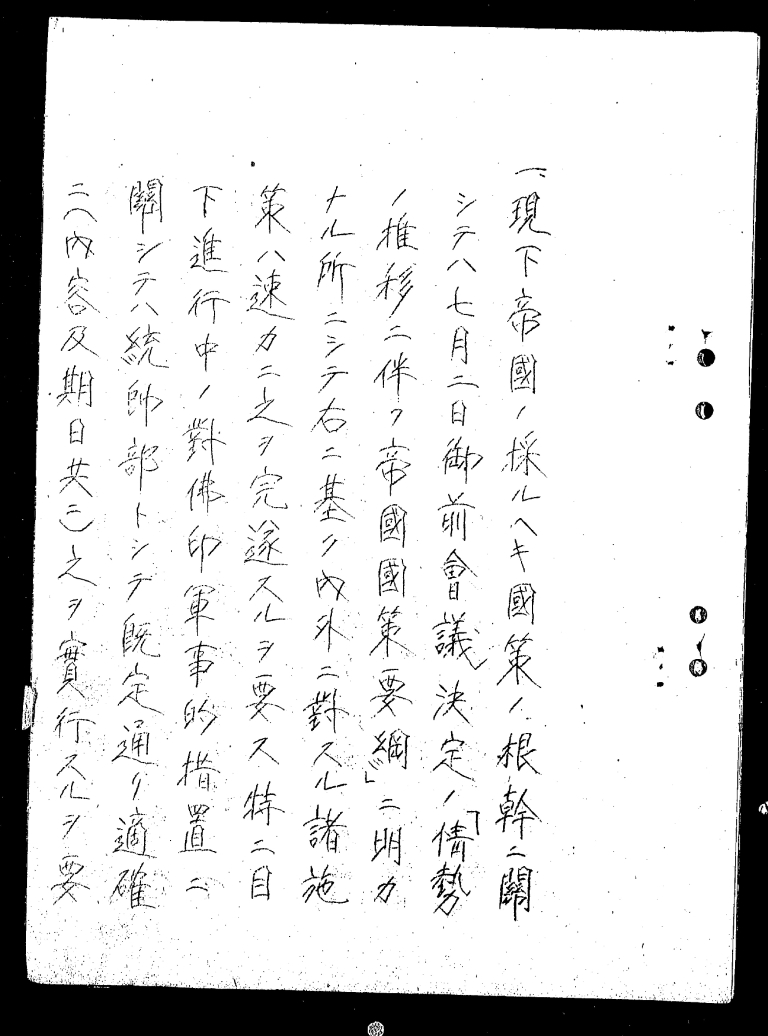 一、現下帝國ノ採ルヘキ國策ノ根幹ニ關
シテハ七月二日御前會議決定ノ「情勢
ノ推移ニ伴フ帝國國策要綱」ニ明カ
ナル所ニシテ右ニ基ク內外ニ對スル諸施
策ハ速カニ之ヲ完遂スルヲ要ス特ニ目
下進行中ノ對佛印軍事的措置ニ
關シテハ統帥部トシテ既定通リ適確
ニ(內容及期日共ニ)之ヲ實行スルヲ要